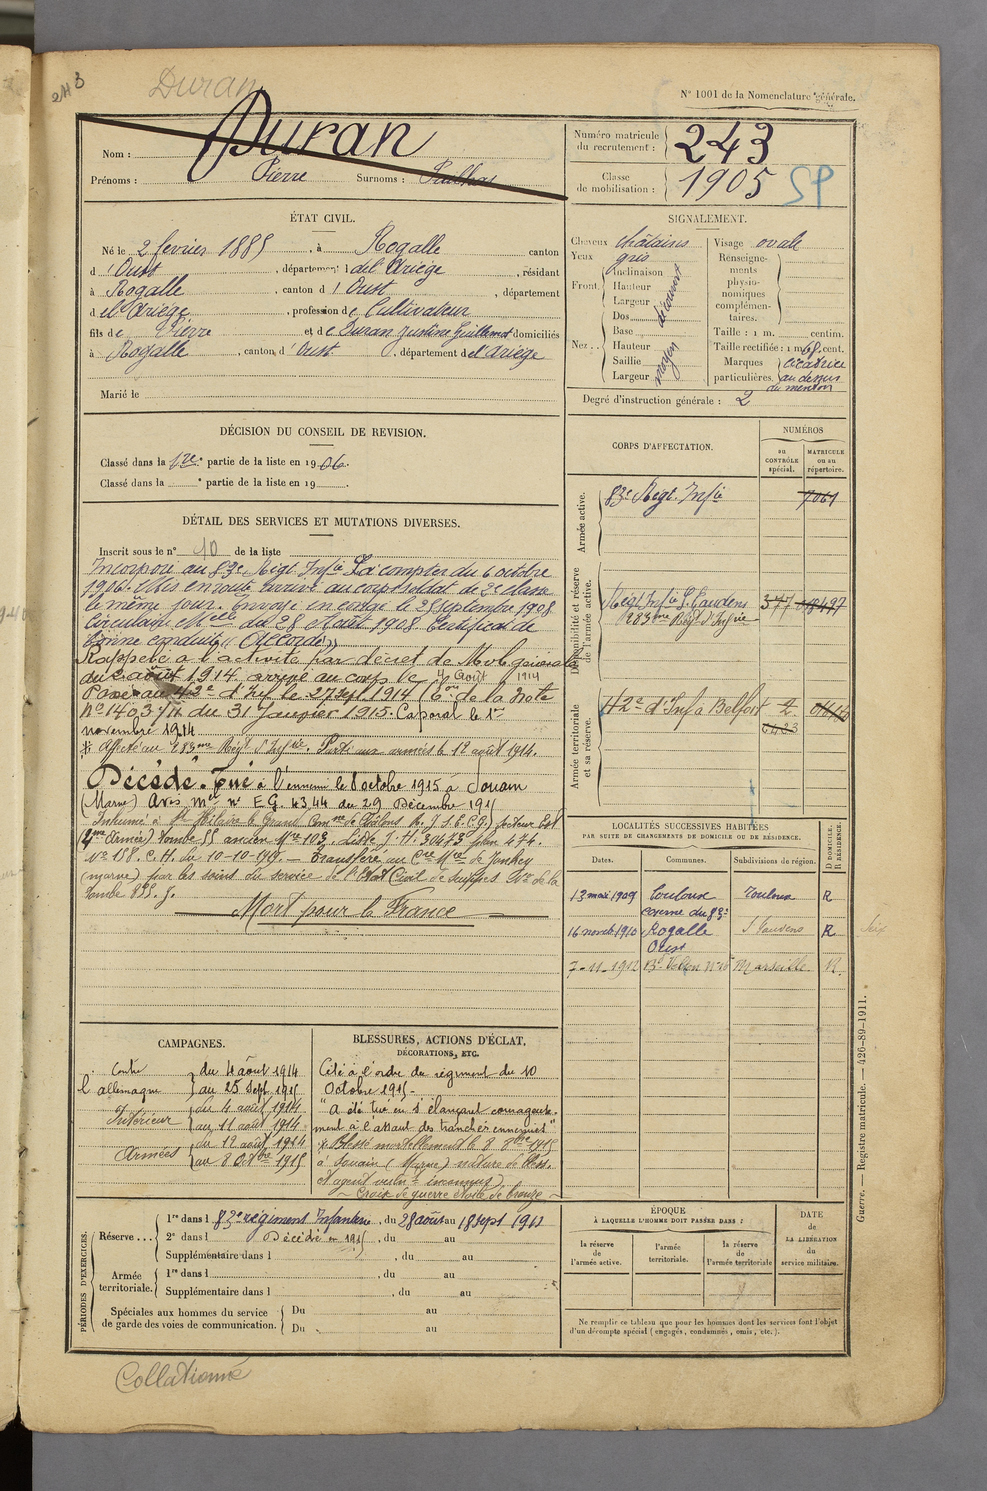 243
Duran
N° 1001 de la Nomenclature générale.
Nom : Duran
Prénoms : Pierre Surnoms :
Numéro matricule du recrutement : 243
Classe de mobilisation : 1905
SP
ÉTAT CIVIL.
Né le 2 fevrier 1885, à Rogalle canton
d'Oust, département de l'Ariège, résidant
à Rogalle, canton d'Oust, département
de l'Ariège, profession de Cultivateur
fils de Pierre et de Duran Justine Guillemot domiciliés
à Rogalle, canton d'Oust, département de l'Ariège
Marié le
SIGNALEMENT.
Cheveux châtains
Yeux gris
Front. Inclinaison
Hauteur
Largeur
découvert
Nez.. Dos
Base
Hauteur
Saillie
Largeur
moyen
Visage ovale
Renseignements physionomiques complémentaires.
Taille : 1 m. centim.
Taille rectifiée : 1 m 68 cent.
Marques particulières. cicatrice
au dessus
du menton
Degré d'instruction générale : 2
DÉCISION DU CONSEIL DE REVISION.
Classé dans la 1re partie de la liste en 1906.
Classé dans la ° partie de la liste en 19 .
DÉTAIL DES SERVICES ET MUTATIONS DIVERSES.
Inscrit sous le n° 10 de la liste
Incorporé au 83e Régt Infie à compter du 6 octobre
1906. Mis en route arrivé au corps soldat de 2e classe
le même jour. Envoyé en congé le 25 septembre 1908
Circulaire Melle du 28 Août 1908 Certificat de
bonne conduite « Accordé »
Rappelé à l'activité par décret de Mob. générale
du 2 août 1914 arrivé au corps le 4 Août 1914
Passé au 42e d'Inf le 27 Sept 1914 (Bon de la Note
N° 1403/11 du 31 Janvier 1915. Caporal le 1er
novembre 1914
* Affecté au 283me Régt d'Infrie. Parti aux armées le 12 août 1914.
Décédé. Tué à l'ennemi le 8 octobre 1915 à Souain
(Marne) Avis mel n° E.G. 4344 du 29 Décembre 1915
Inhumé à St Hilaire le Grand
(4me Armée) Tombe 55 ancien Mre 103. Liste J. H. 30473 plan 474.
N° 158. C. H. du 10-10-19. — Transféré au Cre Mre de Jonchery
(marne) par les soins du service de l'Etat Civil de Suippes N° de la
tombe 835. J.
Mort pour la France
CORPS D'AFFECTATION.
NUMÉROS
au CONTRÔLE spécial.
MATRICULE ou au répertoire.
Armée active.
83e Régt. Infie 7061
Disponibilité et réserve de l'armée active.
Régt Infie St Gaudens 377
283me Régt d'Infrie
Armée territoriale et sa réserve.
42e d'Inf à Belfort
LOCALITÉS SUCCESSIVES HABITÉES
PAR SUITE DE CHANGEMENTS DE DOMICILE OU DE RÉSIDENCE.
Dates. Communes. Subdivisions de région. D DOMICILE. R RÉSIDENCE.
13 mai 1909 Toulouse Toulouse R
caserne du 83e
16 novemb 1910 Rogalle St Gaudens R
Oust
7-11-1912 Bd Marseille R.
Seix
CAMPAGNES.
Contre l'allemagne
du 4 août 1914
au 25 Sept. 1915
Intérieur
du 4 août 1914
au 11 août 1914
Armées
du 12 août 1914
au 8 Octbre 1915
BLESSURES, ACTIONS D'ÉCLAT, DÉCORATIONS, ETC.
Cité à l'ordre du régiment du 10
Octobre 1915-
"A été tué en s'élançant courageuse-
ment à l'assaut des tranchées ennemies"
* Blessé mortellement le 8 8bre 1915
à Souain (Marne) nature de bles.
et agent vuln t inconnus)
~ Croix de guerre étoile de bronze ~
PÉRIODES D'EXERCICES.
Réserve... 1re dans l 83e régiment Infanterie, du 28 août au 18 sept 1912
2e dans l Décédé en 1915, du au
Supplémentaire dans l , du au
Armée territoriale. 1re dans l , du au
Supplémentaire dans l , du au
Spéciales aux hommes du service de garde des voies de communication. Du au
Du au
ÉPOQUE
À LAQUELLE L'HOMME DOIT PASSER DANS :
la réserve de l'armée active.
l'armée territoriale.
la réserve de l'armée territoriale
DATE DE LA LIBÉRATION du service militaire.
Ne remplir ce tableau que pour les hommes dont les services font l'objet
d'un décompte spécial (engagés, condamnés, omis, etc.).
Guerre. — Registre matricule. — 426-89-1911.
Collationné